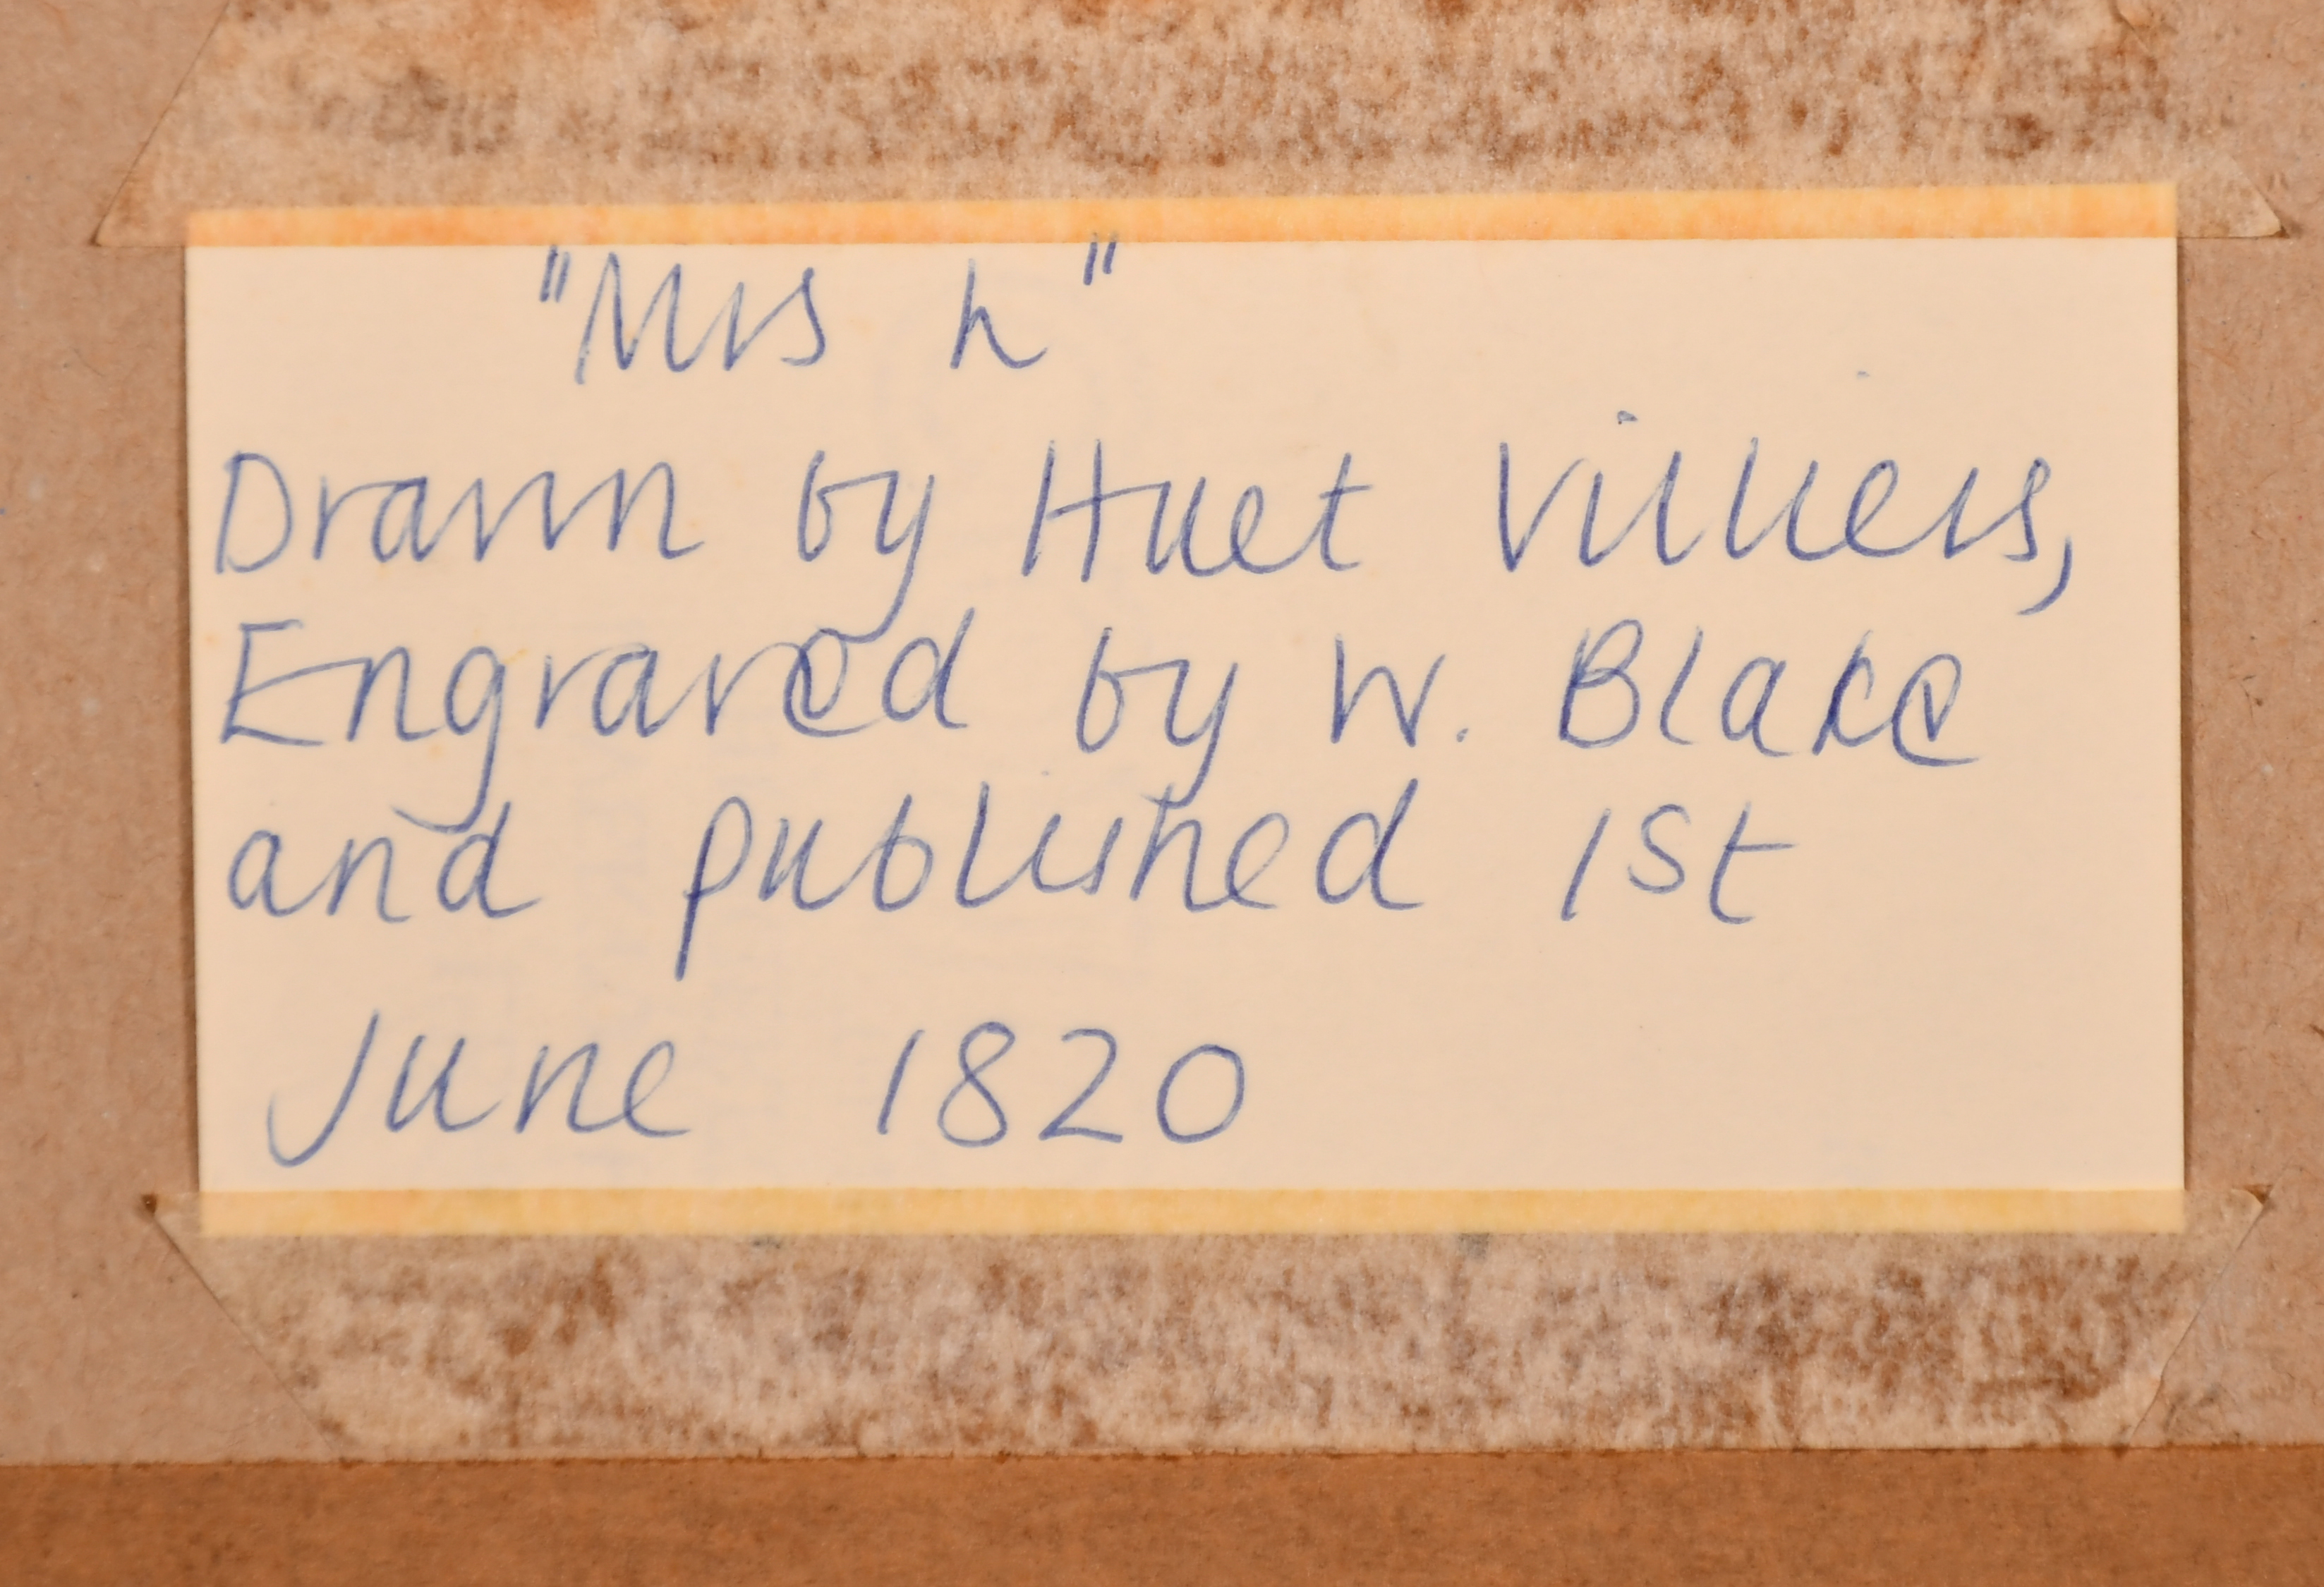 "Mrs h"
Drawn by Huet Villiers,
Engraved by W. Blake
and published 1st
June 1820